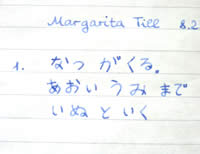 Margarita Till 8.2
1. なつ がくる。
あおい うみ まで
いぬ と いく